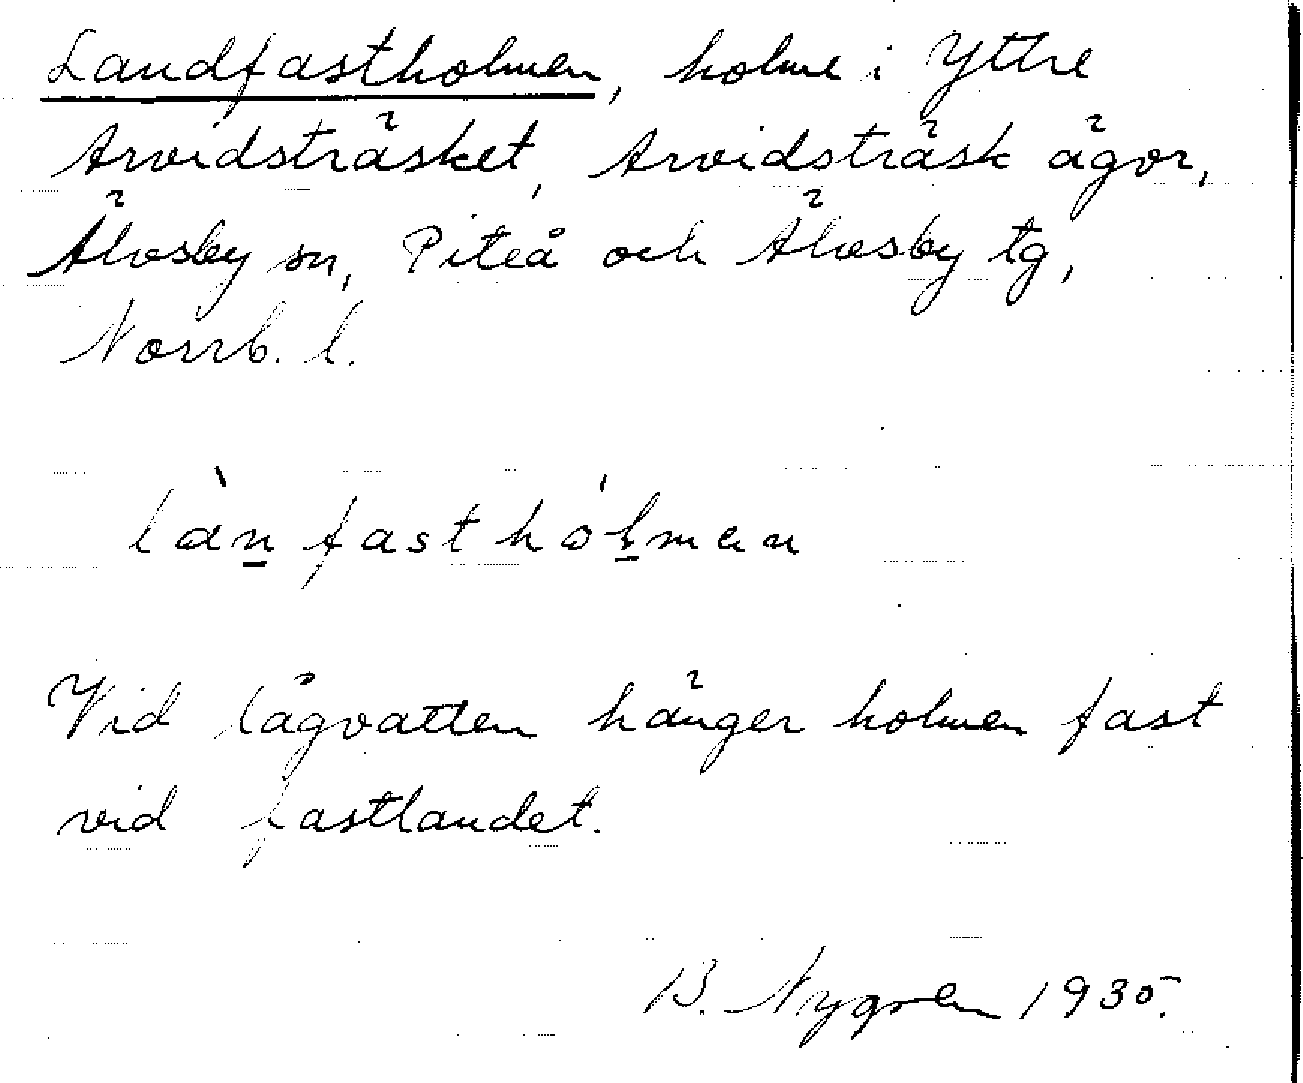 Landfastholmen, holme i Yttre
Arvidsträsket, Arvidsträsk ägor,
Älvsby sn, Piteå och Älvsby tg,
Norrb. l.
lànfasthól̲man
Vid lågvatten hänger holmen fast
vid fastlandet.
B. Nygren 1935.